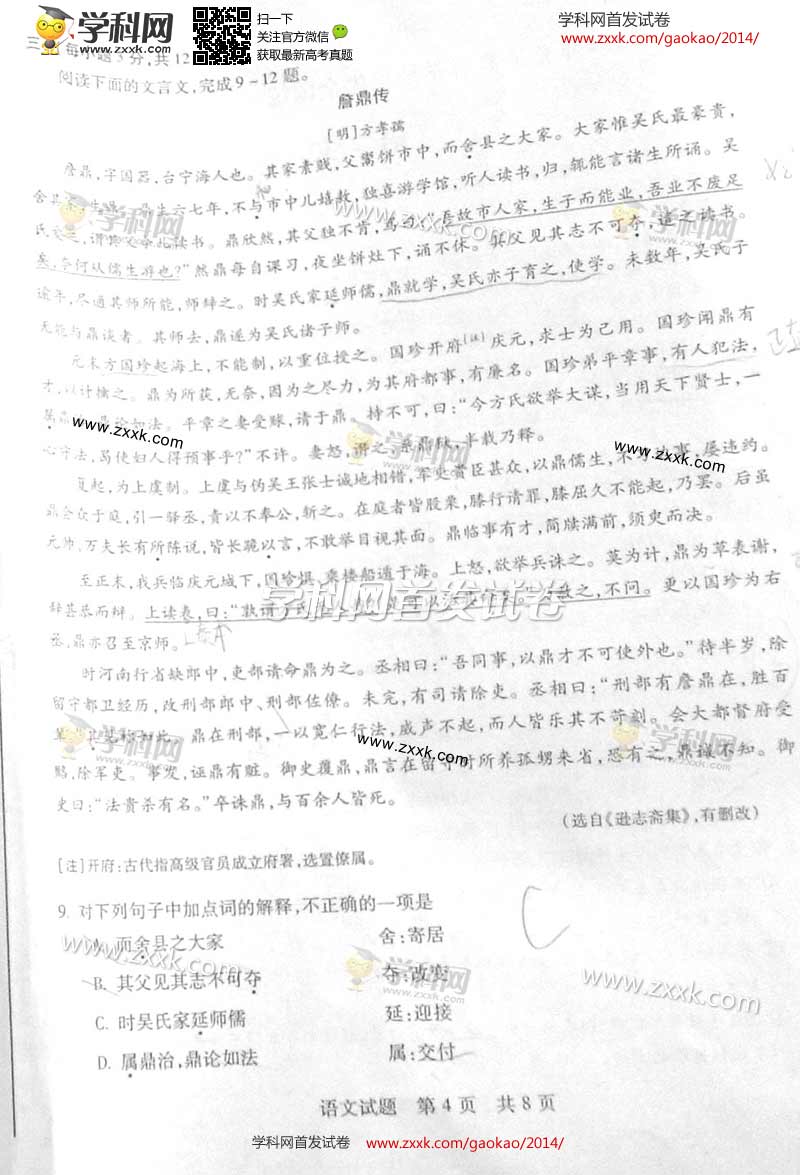 学科网
www.zxxk.com
扫一下
关注官方微信
获取最新高考真题
学科网首发试卷
www.zxxk.com/gaokao/2014/
三
每小题3分,共12
阅读下面的文言文,完成9~12题。
詹鼎传
[明]方孝孺
詹鼎,字国器,台宁海人也。其家素贱,父鬻饼市中,而舍县之大家。大家惟吴氏最豪贵,
舍其 生 鼎生六七年,不与市中儿嬉敖,独喜游学馆,听人读书,归,辄能言诸生所诵。吴
氏 谓其父令儿读书。鼎欣然,其父独不肯,骂曰:“吾故市人家,生子而能业,吾业不废足
矣,奈何从儒生游也?”然鼎每自课习,夜坐饼灶下,诵不休。其父见其志不可夺,遣之读书。
逾年,尽通其师所能,师辞之。时吴氏家延师儒,鼎就学,吴氏亦子育之,使学。未数年,吴氏子
无能与鼎谈者。其师去,鼎遂为吴氏诸子师。
元末方国珍起海上,不能制,以重位授之。国珍开府[注]庆元,求士为己用。国珍闻鼎有
才,以计擒之。鼎为所获,无奈,因为之尽力,为其府都事,有廉名。国珍弟平章事,有人犯法,
属鼎 鼎论如法。平章之妻受赇,请于鼎。持不可,曰:“今方氏欲举大谋,当用天下贤士,一
心守法,曷使妇人得预事乎?”不许。妻怒,谮之,系鼎狱,半载乃释。
复起,为上虞制。上虞与伪吴王张士诚地相错,军吏贵臣甚众,以鼎儒生,不 事,屡违约。
鼎会众于庭,引一驿丞,责以不奉公,斩之。在庭者皆股栗,膝行请罪,膝屈久不能起,乃罢。后虽
元帅、万夫长有所陈说,皆长跪以言,不敢举目视其面。鼎临事有才,简牍满前,须臾而决。
至正末,我兵临庆元城下,国珍惧,乘楼船遁于海。上怒,欲举兵诛之。莫为计,鼎为草表谢,
辞甚恭而辩。上读表,曰:“孰谓方氏 赦之,不问。更以国珍为右
丞,鼎亦召至京师。
时河南行省缺郎中,吏部请命鼎为之。丞相曰:“吾同事,以鼎才不可使外也。”待半岁,除
留守都卫经历,改刑部郎中、刑部佐僚。未完,有司请除吏。丞相曰:“刑部有詹鼎在,胜百
吏。”其见称如此。鼎在刑部,一以宽仁行法,威声不起,而人皆乐其不苛刻。会大都督府受
黥,除军吏。事发,诬鼎有赃。御史覆鼎,鼎言在留守时所养孤甥来省,恐有之,鼎诚不知。御
史曰:“法贵杀有名。”卒诛鼎,与百余人皆死。
(选自《逊志斋集》,有删改)
[注]开府:古代指高级官员成立府署,选置僚属。
9. 对下列句子中加点词的解释,不正确的一项是
C
A. 而舍县之大家 舍:寄居
B. 其父见其志不可夺 夺:改变
C. 时吴氏家延师儒 延:迎接
D. 属鼎治,鼎论如法 属:交付
语文试题 第4页 共8页
学科网首发试卷
www.zxxk.com/gaokao/2014/